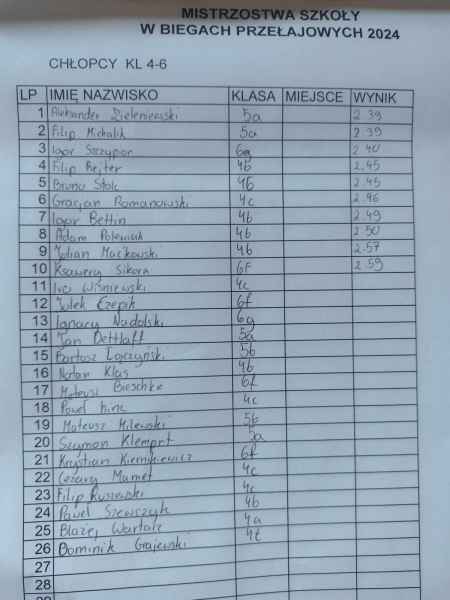 MISTRZOSTWA SZKOŁY
W BIEGACH PRZEŁAJOWYCH 2024
CHŁOPCY KL 4-6
LP IMIĘ NAZWISKO KLASA MIEJSCE WYNIK
1 Aleksander Zieleniewski 5a 2.39
2 Filip Michalik 5a 2.39
3 Igor Szczypor 6g 2.40
4 Filip Rejter 4b 2.45
5 Bruno Stolc 4b 2.45
6 Gracjan Romanowski 4c 2.46
7 Igor Bettin 4b 2.49
8 Adam Poleniuk 4b 2.50
9 Julian Maćkowski 4b 2.57
10 Ksawery Sikora 6f 2.59
11 Iwo Wiśniewski 4c
12 Julek Czepik 6f
13 Ignacy Nadolski 6g
14 Jan Dettlaff 5a
15 Bartosz Łączyński 5b
16 Natan Klas 4b
17 Mateusz Bieschke 6f
18 Paweł Hinc 4c
19 Mateusz Milewski 5b
20 Szymon Klempet 5a
21 Krystian Kiernikiewicz 6f
22 Cezary Mamet 4c
23 Filip 4c
24 Paweł Szewczyk 4b
25 Błażej Wartak 4a
26 Dominik Grajewski
27
28